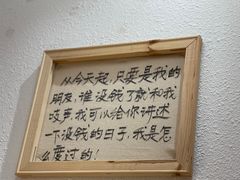 从今天起,只要是我的
朋友,谁没钱了就和我
吱声,我可以给你讲述
一下没钱的日子,我是怎
么度过的!